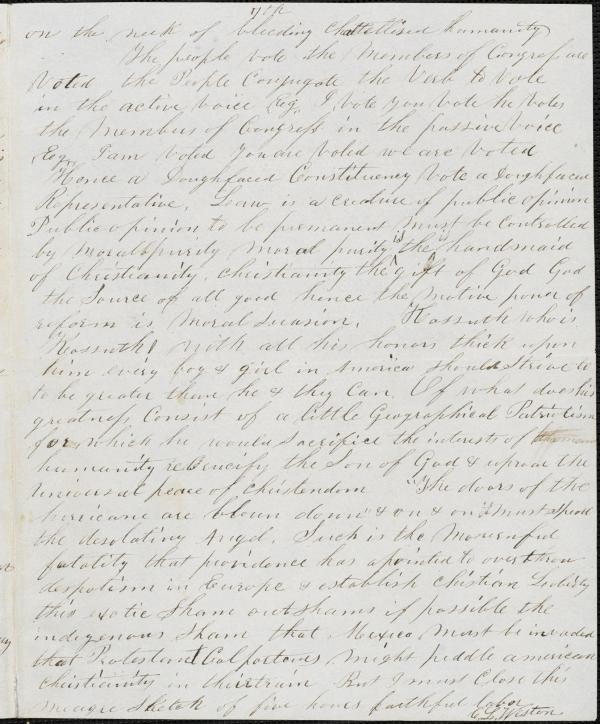 7th
on the neck of bleeding chattellised humanity
The people vote the Members of Congress are
Voted the People Conjugate the Verb to Vote
in the active voice Eeg. I Vote you Vote he Votes
the Members of Congress in the passive Voice
Eeg I am Voted you are Voted we are Voted
Hence a Doughfaced Constituency Vote a Doughfaced
Representative. Law is a creature of public opinion
Public opinion to be permanent must be controlled
by moral purity moral purity is the handmaid
of Christianity. Christianity the gift of God God
the Source of all good hence the motive power of
reform is Moral Suasion. Kossuth who is
Kossuth! With all his honors thick upon
him every boy & girl in America should strive to
to be greater than he & they can. Of what does his
greatness Consist of a little Geographical Patriotism
for which he would sacrifice the interests of
humanity recrucify the Son of God & uproar the
Universal peace of christendom "The doors of the
herricane are blown down & on & on must speed
the desolating Angel. Such is the Mournful
fatality that providence has apointed to overthrow
despotism in Europe & establish chistian Liberty
this exotic Sham outshams if possible the
indigenous Sham that Mexico must be invaded
that Protestant Calportours might peddle american
christianity in their train But I must Close this
meagre Sketch of five hours faithful labor
Weston